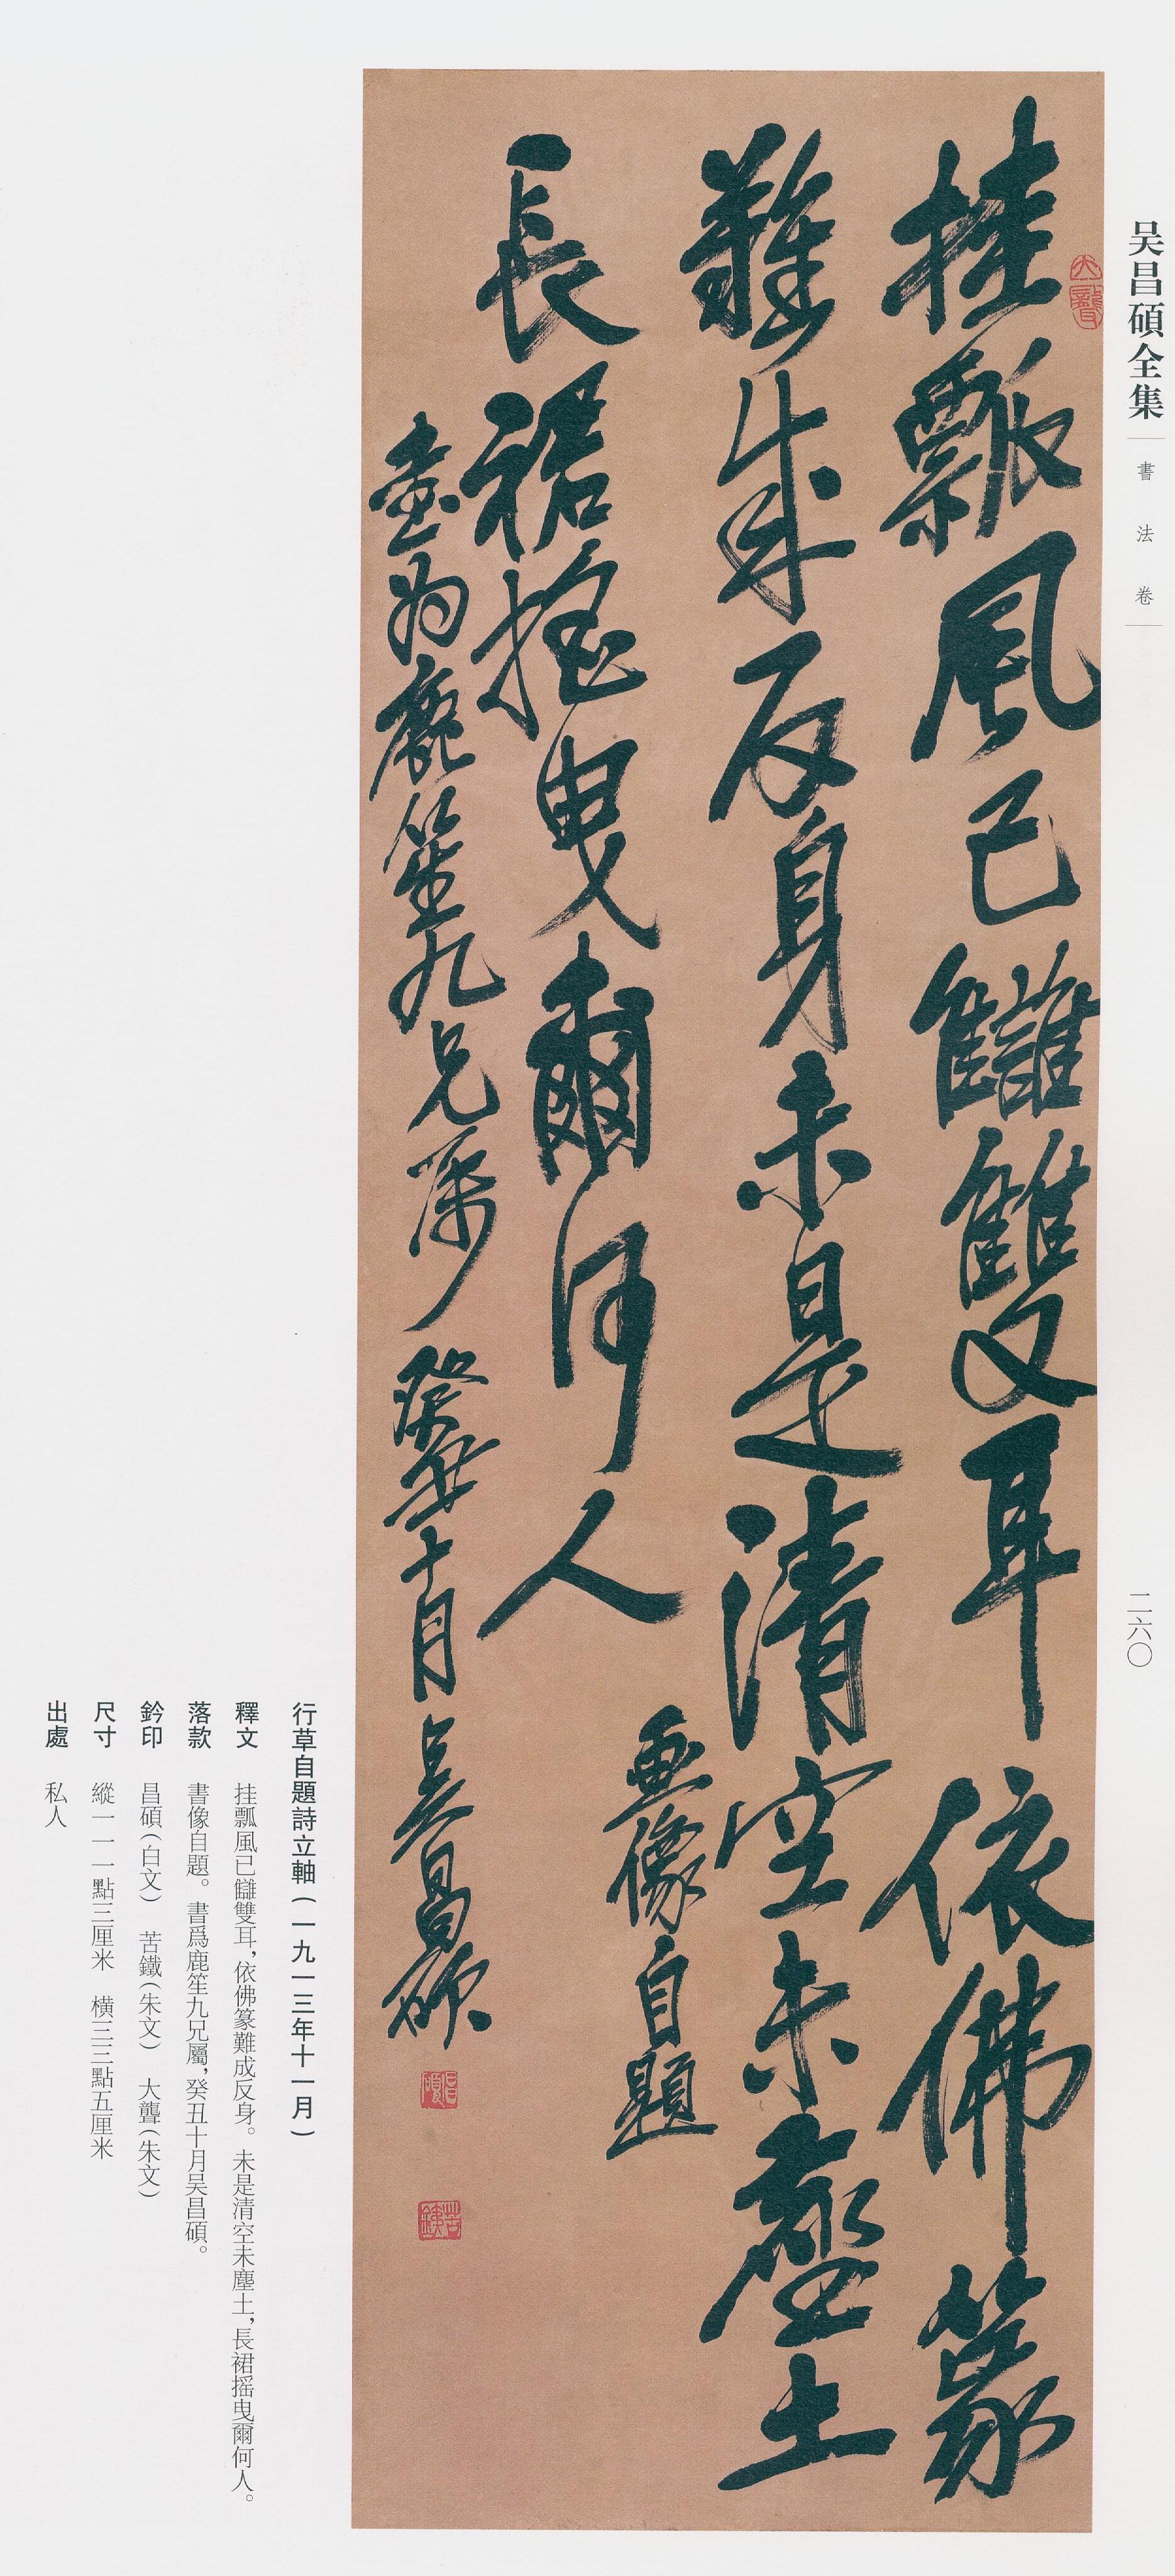 吴昌碩全集
書法卷
二六〇
大聾
挂瓢風已讎雙耳依佛篆
難成反身未是清空未塵土
長裙搖曳爾何人
畫像自題
書为鹿笙九兄屬癸丑十月吴昌碩
昌碩
苦鐵
行草自題詩立軸(一九一三年十一月)
釋文 挂瓢風已讎雙耳,依佛篆難成反身。未是清空未塵土,長裙摇曳爾何人。
落款 書像自題。書爲鹿笙九兄屬,癸丑十月吴昌碩。
鈐印 昌碩(白文) 苦鐵(朱文) 大聾(朱文)
尺寸 縱一一一點三厘米 横三三點五厘米
出處 私人